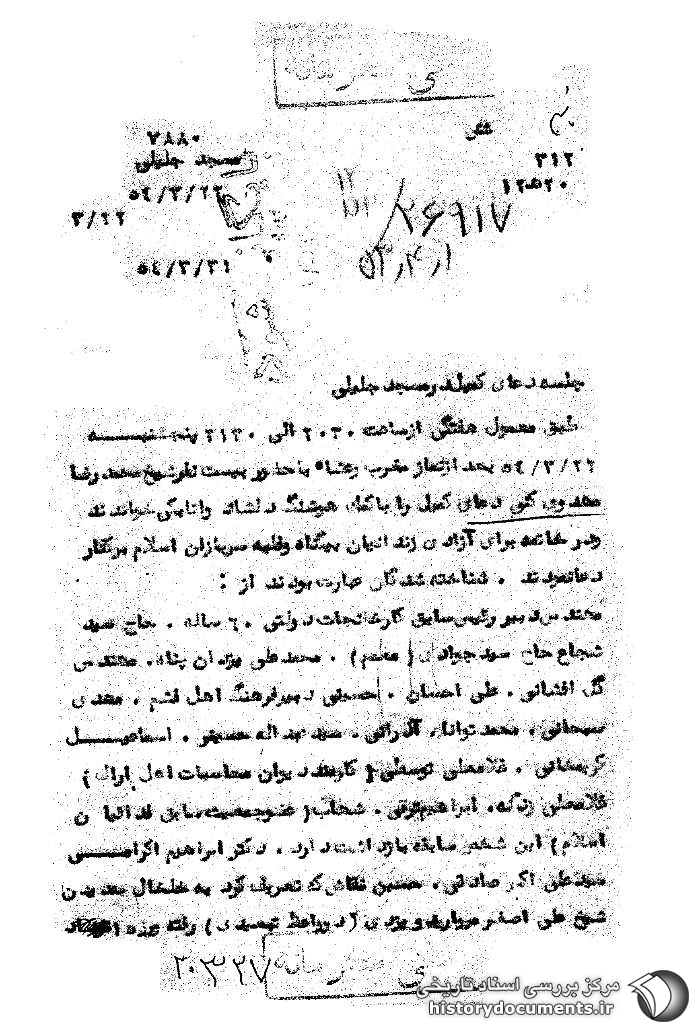 خیلی محرمانه
۷۸۸۰
مسجد جلیلی
۳۱۲
۵٤/۳/۲۲
۱۲۵۲۰
۳/۲۲
۲۶۹۱۷
۵۴٫۴٫۱
۵٤/۳/۳۱
جلسه دعای کمیل در مسجد جلیلی
طبق معمول هفتگی از ساعت ۲۰۳۰ الی ۲۱۳۰ پنجشنبه
۵٤/۳/۲۲ بعد از نماز مغرب وعشاء با حضور بیست نفر شیخ محمد رضا
مهدوی کنی دعای کمیل را با کمک هوشنگ دلشاد واتابکی خواندند
ودر خاتمه برای آزادی زندانیان بیگناه وبقیه سربازان اسلام برگذار
دعا نمودند . شناخته شدگان عبارت بودند از :
مهندس دبیر رئیس سابق کارخانجات دولتی ٦۰ ساله . حاج سید
شجاع حاج سید جوادی ( معمم ) . محمد علی یزدان پناه . مهندس
گل افشانی . علی احسان . حسینی دبیر فرهنگ اهل قشم . مهدی
سبحانی . محمد توانا . آذرانی . سید عبداله حسینی . اسماعیل
کریمخانی . غلامعلی توسطی ( کارمند دیوان محاسبات اهل اراک )
غلامعلی زندکه . ابراهیم برقی . شهاب ( عضو جمعیت سابق فدائیان
اسلام ) این شخص سابقه بازداشت دارد . دکتر ابراهیم اکرامی
سید علی اکبر صادقی . حسین نقاش که تعریف کرد به خلخال بدیدن
شیخ علی اصغر مروارید و یزدی ( دو واعظ تبعیدی ) رفته بوده
خیلی محرمانه
۳۰۳۲۷
مرکز بررسی اسناد تاریخی
historydocuments.ir